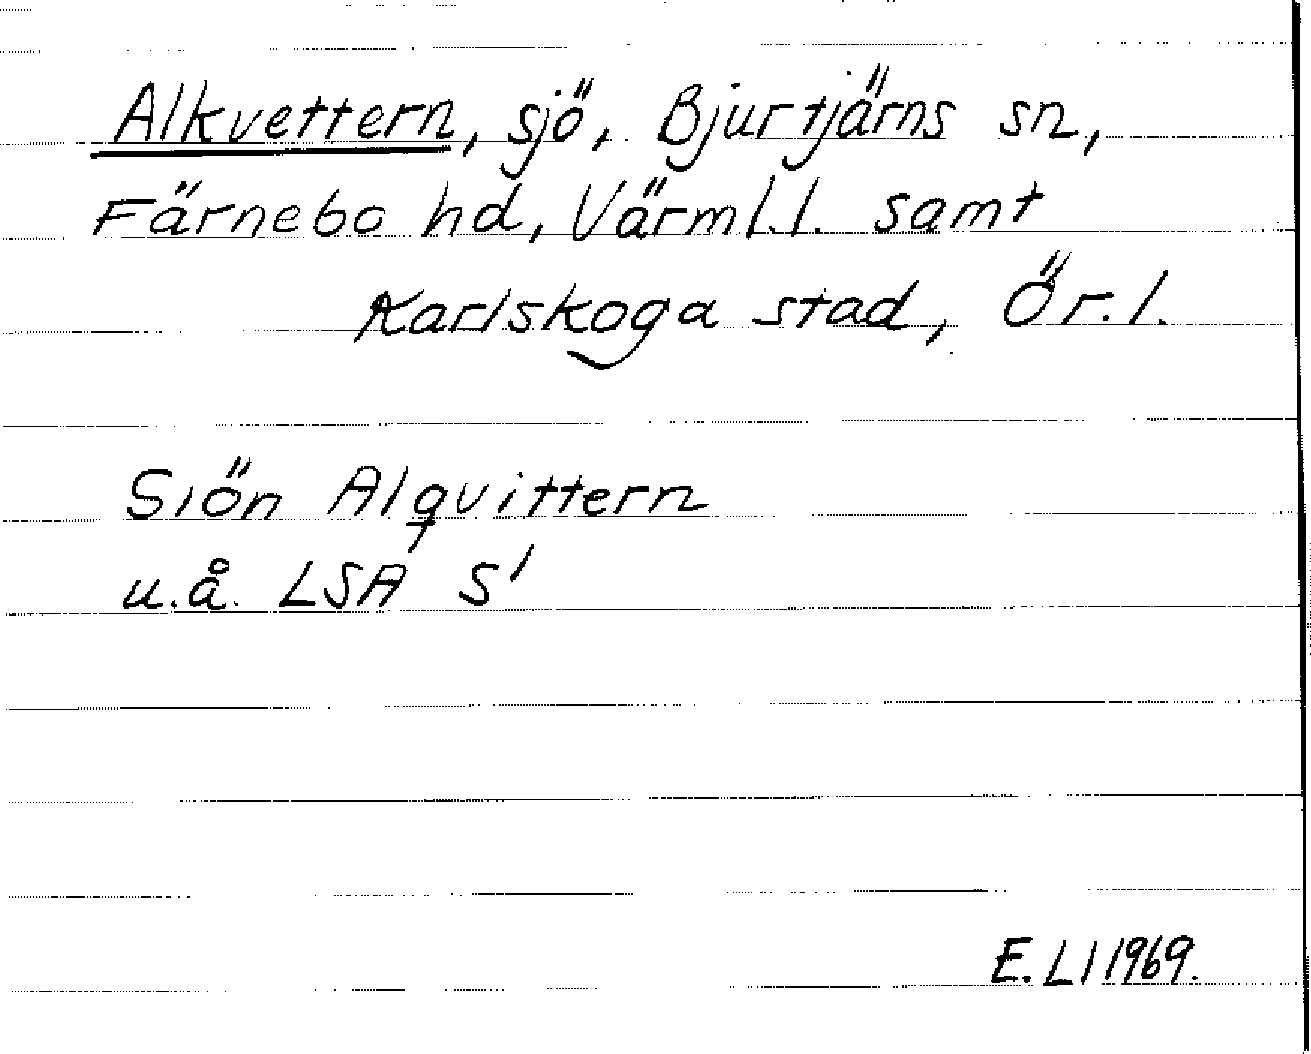 Alkvettern, sjö, Bjurtjärns sn,
Färnebo hd, Värml.l. samt
Karlskoga stad, Ör.l.
Siön Alqvittern
u.å. LSA S1
E. Ll 1969.